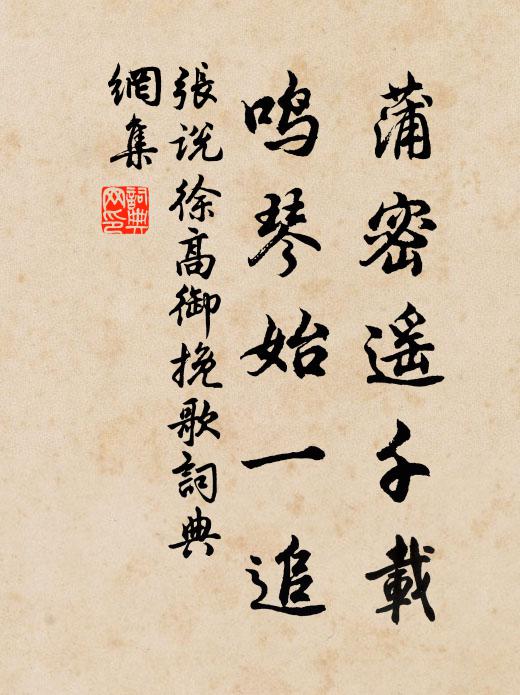 蒲密遥千載
鸣琴始一追
張説徐高御挽歌詞典
網集
詞典
网印